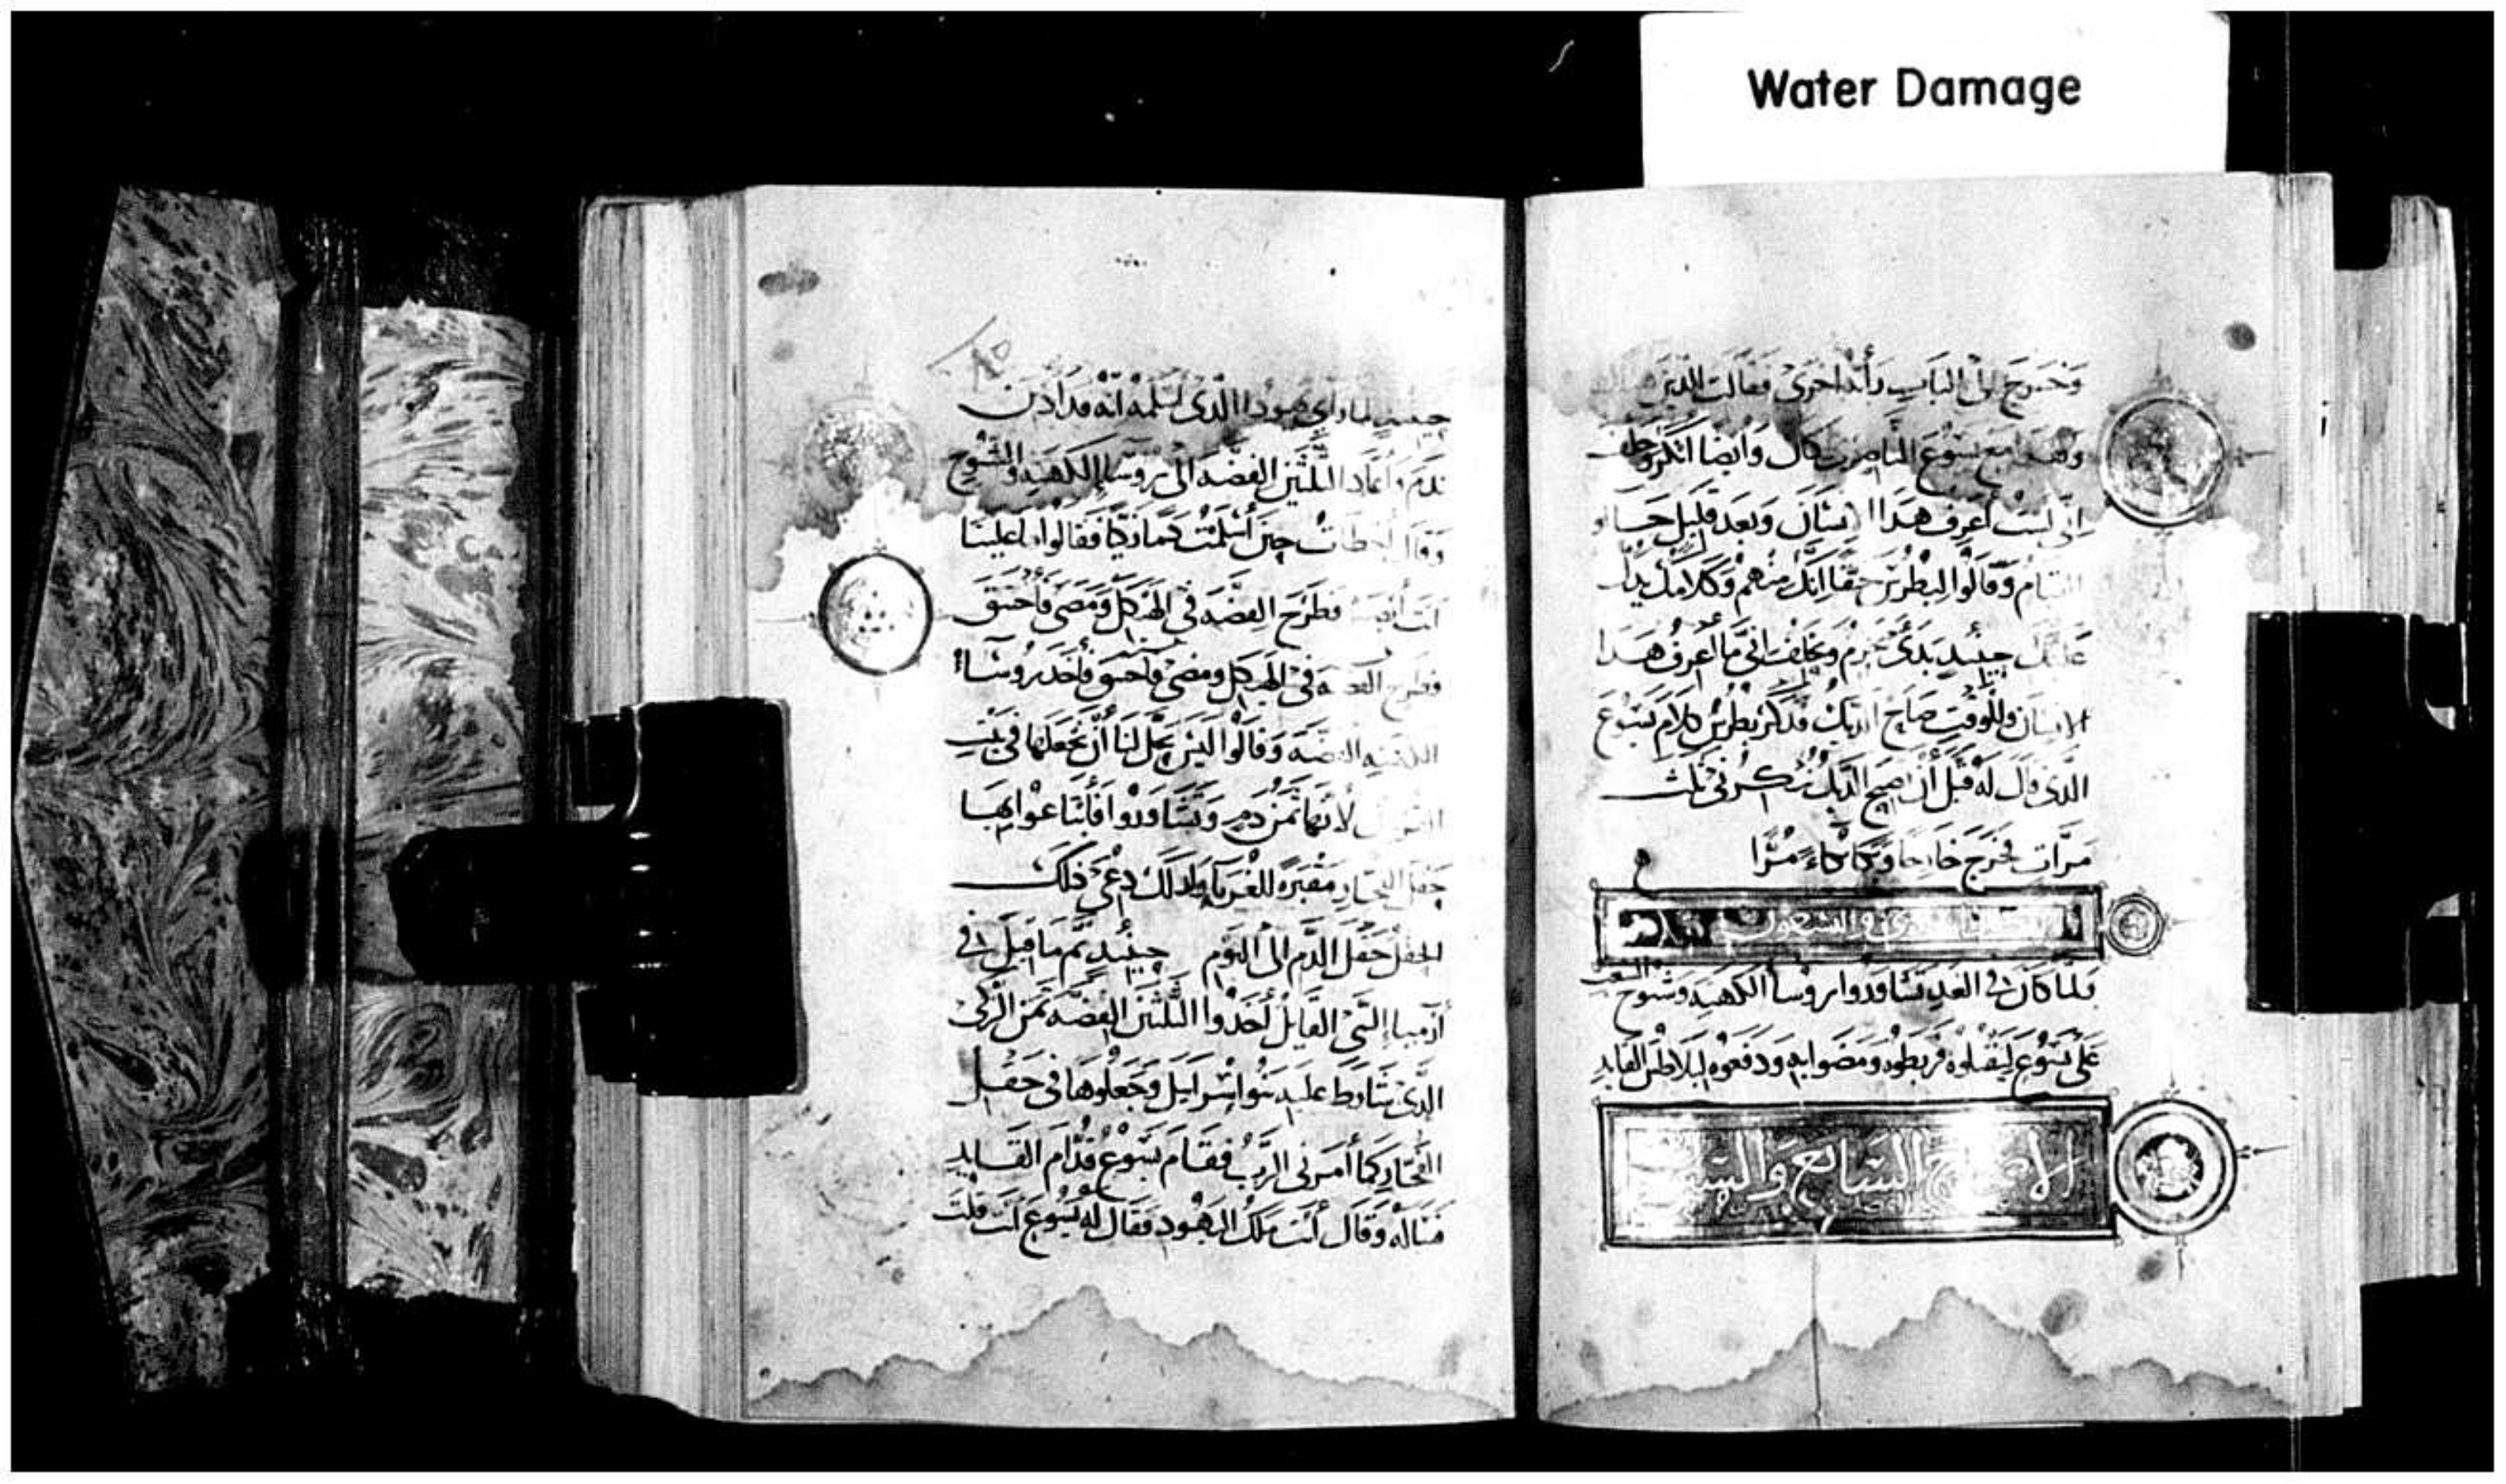 Water Damage
وَخَرَجَ إلى الباب رأته أخرى فقالت للذين
وهذا مع يسوع الناصري كان وأيضا أنكر وحلف
إنى لست أعرف هدا الانسان وبعد قليل جاء
القيام وقالوا لبطرس حقا انك منهم وكلامك يدل
عليك حينيد بدى يحرم ويحلف انى ما أعرف هدا
الانسان وللوقت صاح الديك فدكر بطرس كلام يسوع
الدى قال له قبل أن يصيح الديك تنكرنى ثلث
مرّات فخرج خارجا وبكا بكاءً مُرّا
والسبعون
فلما كان فى الغد تشاوروا روسا الكهنه وشيوخ الشعب
على يسوع ليقتلوه فربطوه ومضوا به ودفعوه لبيلاطس القايد
الاصحاح السابع والعشرون
حينيد لما راى يهودا الدى اسلمه انه قد ادين
ندم وأعاد الثلثين الفضه الى روسا الكهنه والشيوخ
وقال أخطأت حين أسلمت دما زكيا فقالوا ما علينا
انت أبصر فطرح الفضه فى الهيكل ومضى فاختنق
فطرح الفضه فى الهيكل ومضى فاختنق فأخد روساء
الكهنه الفضه وقالوا ليس يحل لنا أن نجعلها فى بيت
لأنها ثمن دم وتشاوروا فابتاعوا بها
حقل الفخار مقبره للغرباء ولدلك دعى ذلك
الحقل حقل الدم الى اليوم حينيد تم ما قيل فى
أرميا النبى القايل أخدوا الثلثين الفضه ثمن الزكى
الدى شارط عليه بنو اسرايل وجعلوها فى حقل
الفخار كما أمرنى الرب فقام يسوع قدام القايد
فساله وقال أنت ملك اليهود فقال له يسوع انت قلت